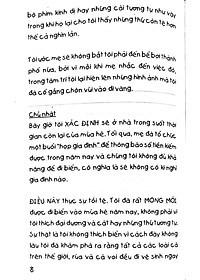 bộ phim kinh dị hay những cái tương tự như vậy
trong khi họ lại cho tôi thấy những thứ còn tệ hơn
thế cả nghìn lần.
Tôi ước mẹ sẽ không bắt tôi phải đến bể bơi thành
phố nữa, bởi vì mỗi khi mẹ nhắc đến việc đó,
trong tâm trí tôi lại hiện lên những hình ảnh mà tôi
đã cố gắng chôn vùi vào dĩ vãng.
Chủ nhật
Bây giờ tôi XÁC ĐỊNH sẽ ở nhà trong suốt thời
gian còn lại của mùa hè. Tối qua, mẹ đã tổ chức
một buổi "họp gia đình" để thông báo số tiền kiếm
được trong năm nay và chúng tôi không đủ khả
năng để đi biển, có nghĩa là sẽ không có kì nghỉ
gia đình nào.
ĐIỀU NÀY thực sự tồi tệ. Tôi đã rất MONG MỎI
được đi biển vào mùa hè năm nay, không phải vì
tôi thích đại dương và cát hay những thứ tương tự.
Sự thật là tôi không thích biển vì cách đây không
lâu tôi đã khám phá ra rằng tất cả các loại cá
trên thế giới, rùa và cá voi đều đi vệ sinh ngay
8